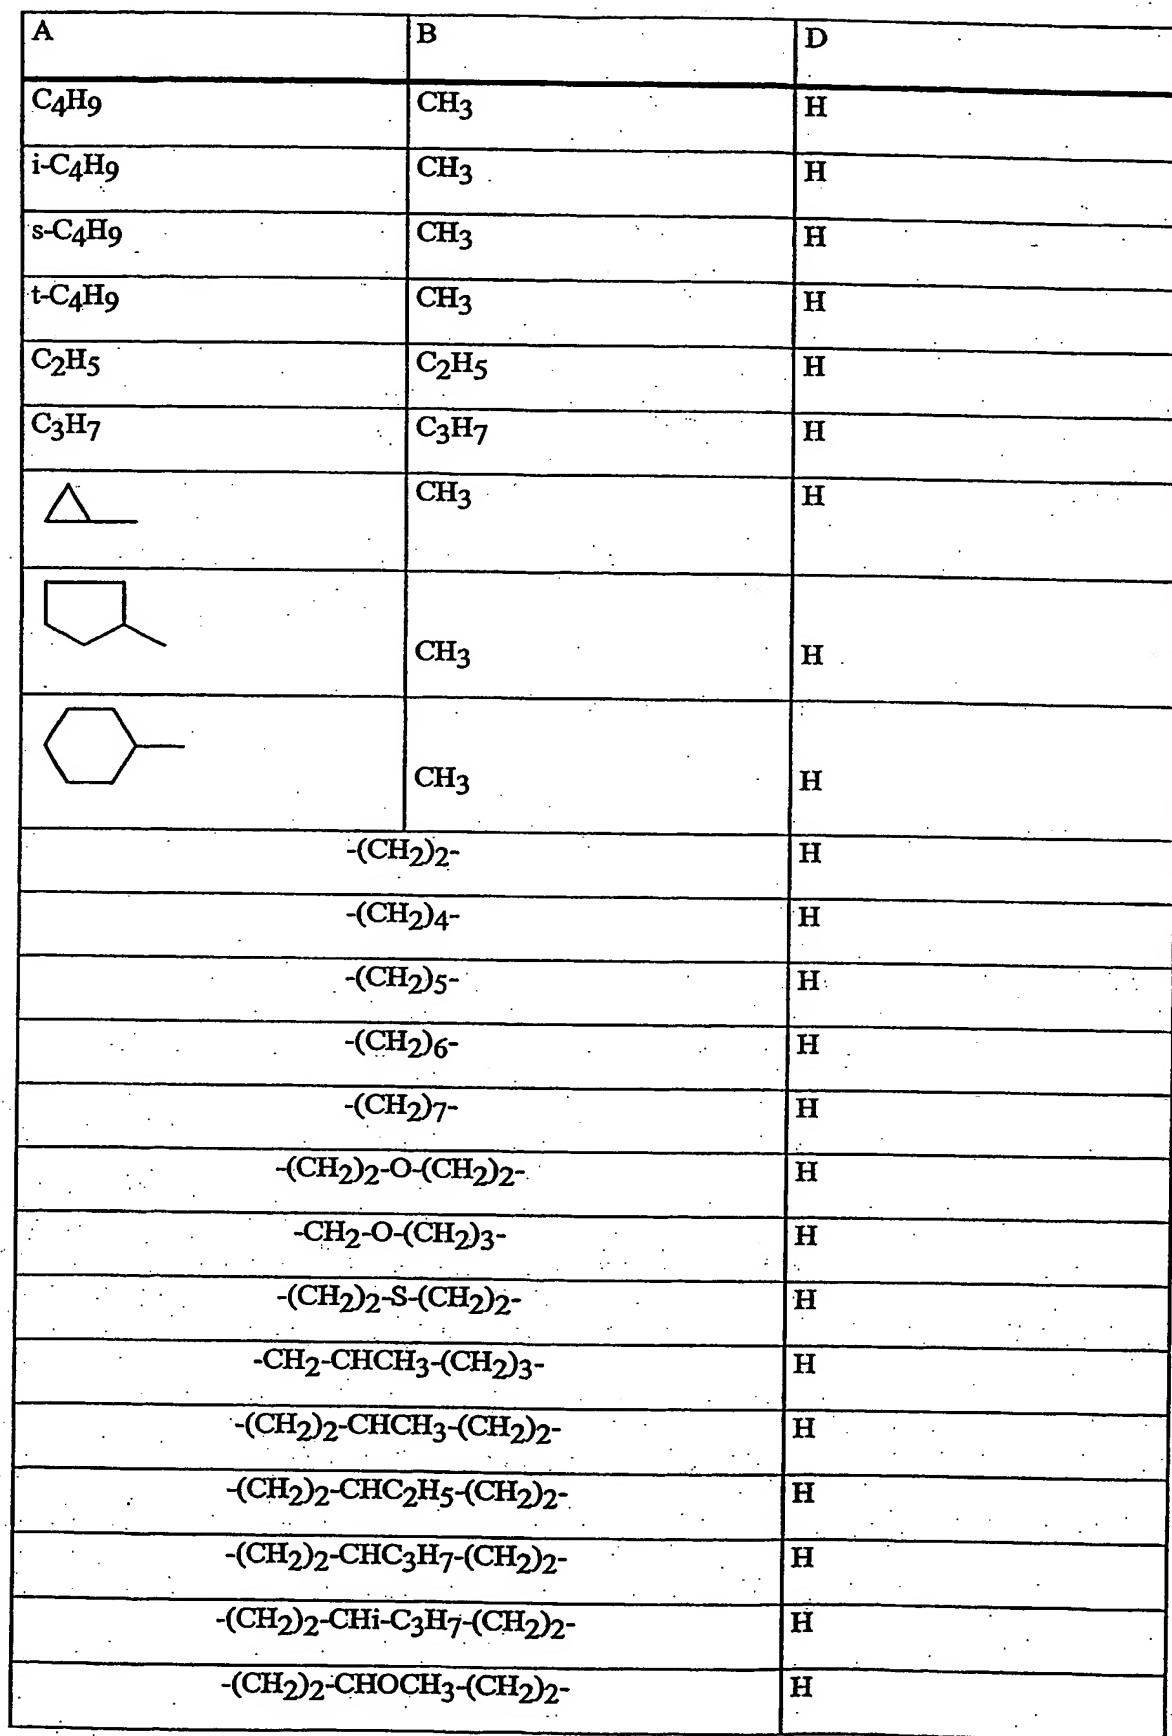 A B D
C4H9 CH3 H
i-C4H9 CH3 H
s-C4H9 CH3 H
t-C4H9 CH3 H
C2H5 C2H5 H
C3H7 C3H7 H
CH3 H
CH3 H
CH3 H
-(CH2)2- H
-(CH2)4- H
-(CH2)5- H
-(CH2)6- H
-(CH2)7- H
-(CH2)2-O-(CH2)2- H
-CH2-O-(CH2)3- H
-(CH2)2-S-(CH2)2- H
-CH2-CHCH3-(CH2)3- H
-(CH2)2-CHCH3-(CH2)2- H
-(CH2)2-CHC2H5-(CH2)2- H
-(CH2)2-CHC3H7-(CH2)2- H
-(CH2)2-CHi-C3H7-(CH2)2- H
-(CH2)2-CHOCH3-(CH2)2- H